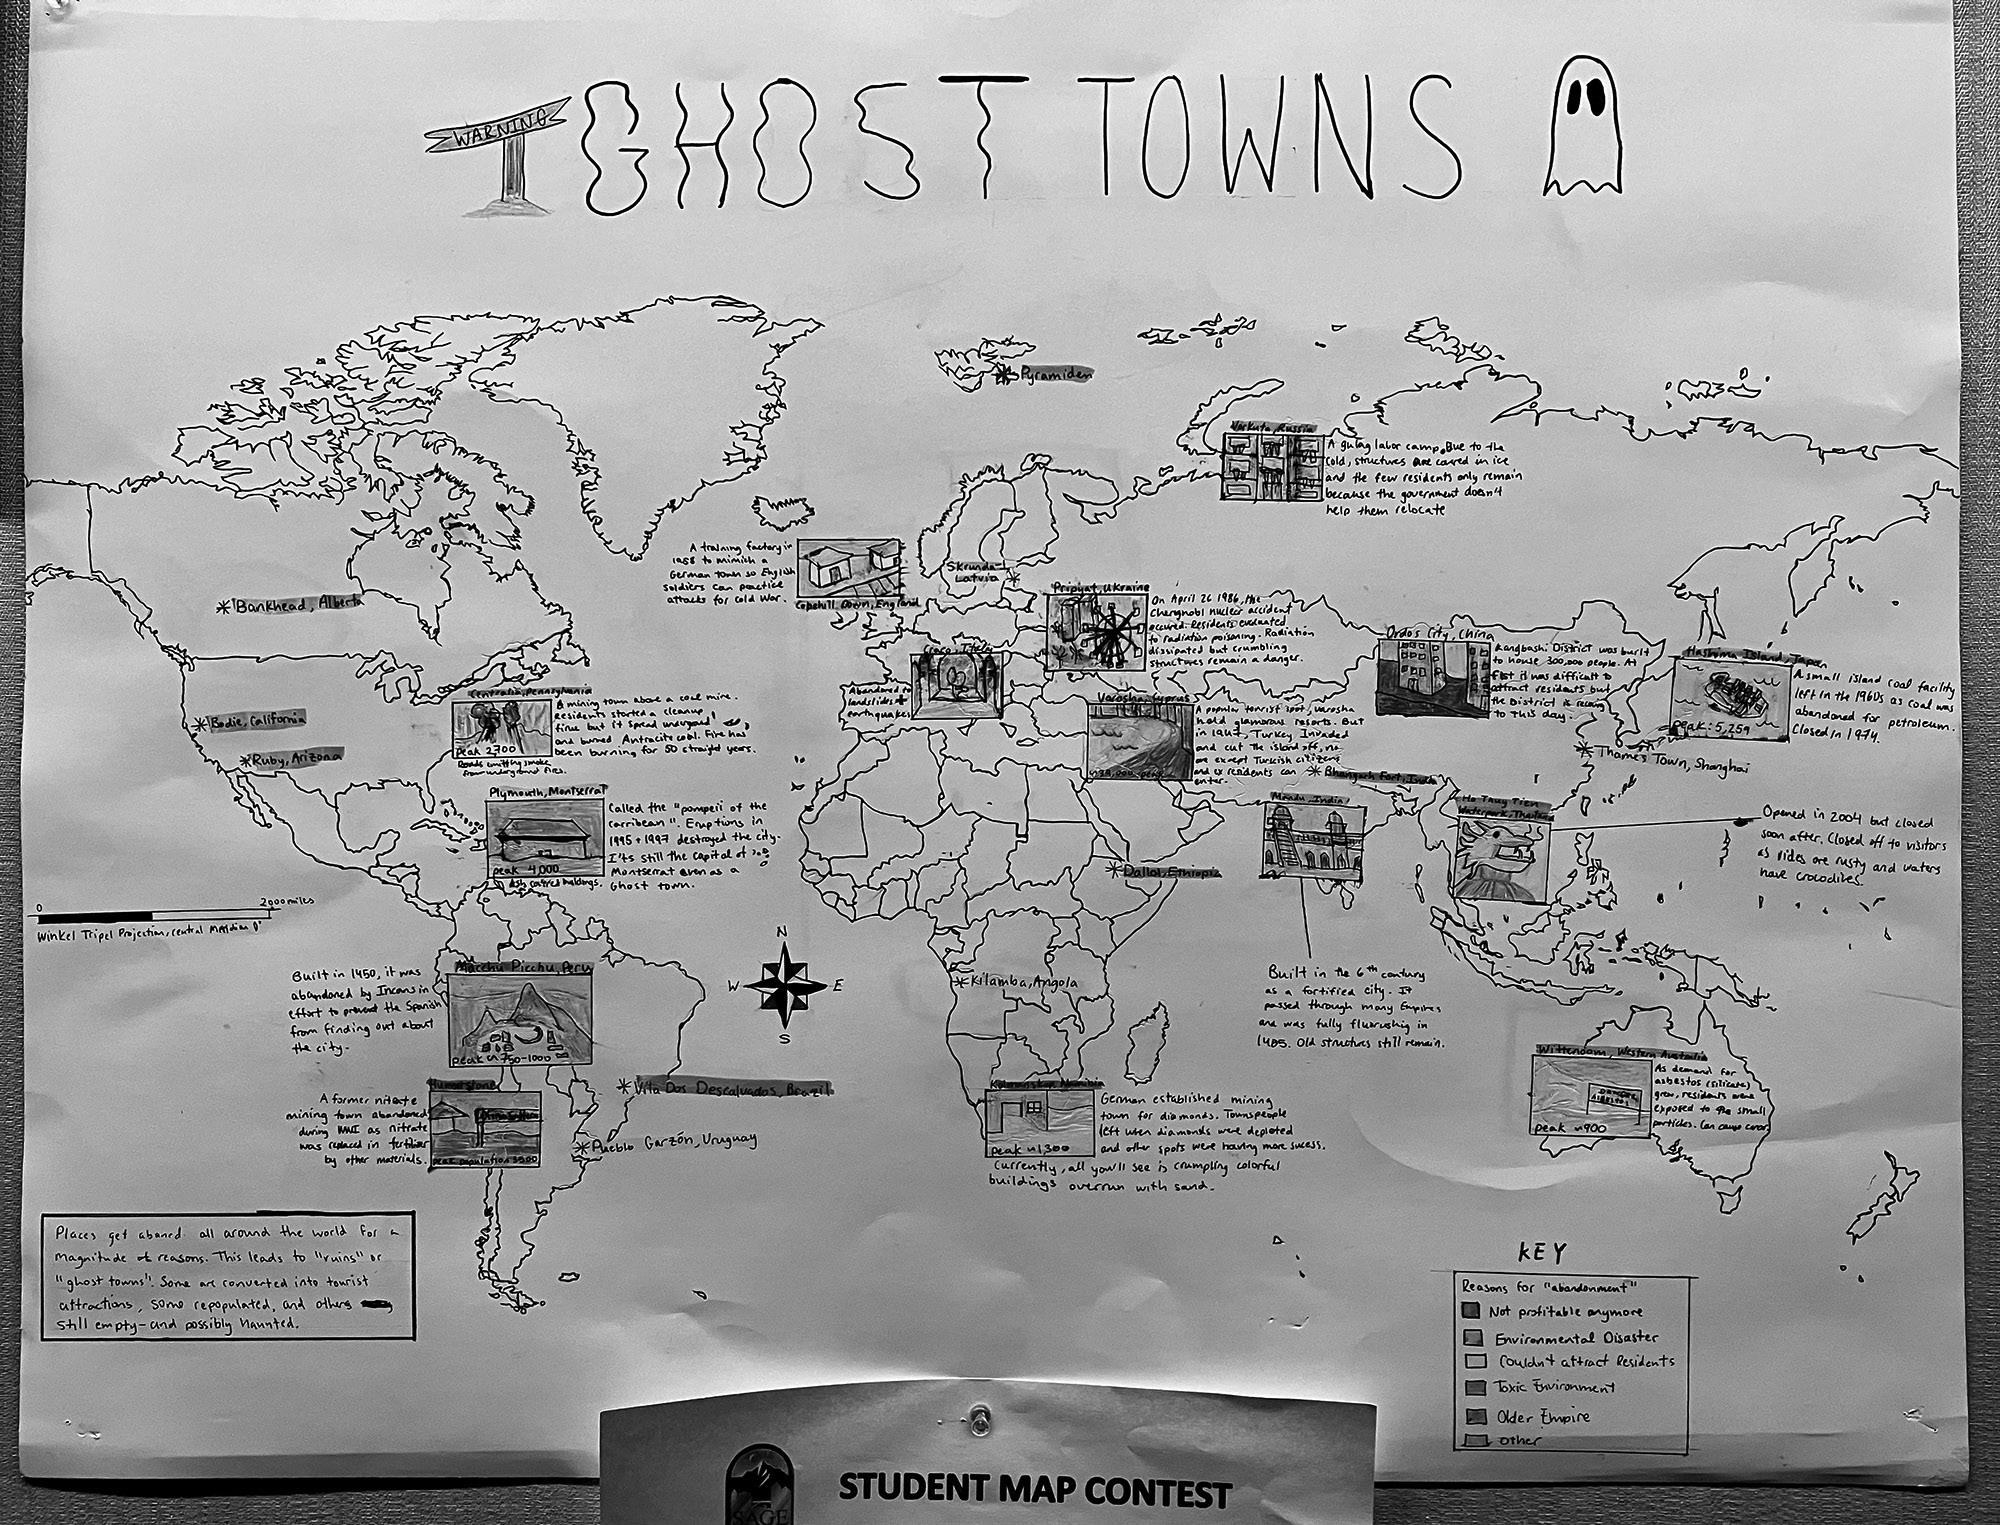 WARNING
GHOST TOWNS
Pyramiden
Vorkuta, Russia
A gulag labor camp. Due to the
cold, structures are coverd in ice
and the few residents only remain
because the government doesn't
help them relocate
A training factory in
1988 to mimich a
German town so English
soldiers can practice
attacks for Cold War.
Copehill Down, England
Skrunda-1
Latvia
Pripyat, Ukraine
On April 26 1986, the
nuclear accident
occured. Residents evacuated
to radiation poisoning. Radiation
dissipated but crumbling
structures remain a danger.
Bankhead, Alberta
Craco, Italy
Abandoned to
landslides +
earthquakes
Ordos City, China
Kangbashi District was built
to house 300,000 people. At
first it was difficult to
attract residents but
the District is
to this day.
Hashima Island, Japan
A small island coal facility
left in the 1960s as coal was
abandoned for petroleum.
Closed in 1974.
peak: 5,259
Centralia, Pennsylvania
A mining town above a coal mine.
Residents started a cleanup
fire but it spread
and burned Antracite coal. Fire has
been burning for 50 straight years.
peak 2,700
Roads emitting smoke
from underground fires.
Bodie, California
Ruby, Arizona
Varosha, Cyprus
A popular tourist spot, Varosha
held glamorous resorts. But
in Turkey Invaded
and cut the island off, no
are except Turkish citizens
and ex residents can
enter.
Thames Town, Shanghai
Bhangarh Fort, India
Plymouth, Montserrat
Called the "pompeii of the
carribean". Eruptions in
1995 + 1997 destroyed the city.
It's still the capital of
Montserrat even as a
Ghost town.
peak 4,000
Ash coverd buildings.
Mandu, India
Ho Thuy Tien
Waterpark, Thailand
Opened in 2004 but closed
soon after. Closed off to visitors
as rides are rusty and waters
have crocodiles.
Dallol, Ethiopia
0 2000 miles
Winkel Tripel Projection, central Meridian 0°
N
W E
S
Macchu Picchu, Peru
Built in 1450, it was
abandoned by Incans in
effort to prevent the Spanish
from finding out about
the city.
peak ~ 750-1000
Kilamba, Angola
Built in the 6th century
as a fortified city. It
passed through many Empires
and was fully flurushing in
1405. Old structures still remain.
Wittenoom, Western Australia
As demand for
asbestos (silicate)
grew, residents were
exposed to the small
particles. Can cause cancer
peak ~900
Humerstone
A former nitrate
mining town abandoned
during WWI as nitrate
was replaced in fertilizer
by other materials.
peak population 3500
Vila Dos Descalvados, Brazil
Pueblo Garzón, Uruguay
Kolmanskop, Namibia
German established mining
town for diamonds. Townspeople
left when diamonds were depleted
and other spots were having more sucess.
Currently, all you'll see is crumpling colorful
buildings overrun with sand.
peak ~1,300
Places get aband all around the world for a
magnitude of reasons. This leads to "ruins" or
"ghost towns". Some are converted into tourist
attractions, some repopulated, and others
still empty - and possibly haunted.
KEY
Reasons for "abandonment"
Not profitable anymore
Environmental Disaster
Couldn't attract Residents
Toxic Environment
Older Empire
Other
STUDENT MAP CONTEST
SAGE